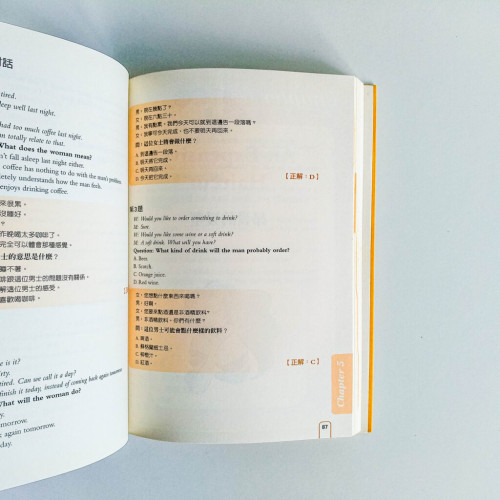 對話
tired.
eep well last night.
had too much coffee last night.
an totally relate to that.
What does the woman mean?
n't fall asleep last night either.
coffee has nothing to do with the man's problem.
pletely understands how the man feels.
enjoys drinking coffee.
來很累。
沒睡好。
昨晚喝太多咖啡了。
完全可以體會那種感覺。
士的意思是什麼?
睡不著。
啡跟這位男士的問題沒有關係。
解這位男士的感受。
喜歡喝咖啡。
e is it?
irty.
tired. Can we call it a day?
finish it today, instead of coming back again tomorrow.
What will the woman do?
tomorrow.
again tomorrow.
day.
男:現在幾點了?
女:現在六點三十。
男:我有點累。我們今天可以就到這邊告一段落嗎?
女:我寧可今天完成,也不要明天再回來。
問:這位女士將會做什麼?
A. 到這邊告一段落。
B. 明天將它完成。
C. 明天再回來。
D. 今天把它完成。
【正解:D】
第3題
W: Would you like to order something to drink?
M: Sure.
W: Would you like some wine or a soft drink?
M: A soft drink. What will you have?
Question: What kind of drink will the man probably order?
A. Beer.
B. Scotch.
C. Orange juice.
D. Red wine.
女:您想點什麼東西來喝嗎?
男:好啊。
女:您要來點酒還是非酒精飲料?
男:非酒精飲料。你們有什麼?
問:這位男士可能會點什麼樣的飲料?
A. 啤酒。
B. 蘇格蘭威士忌。
C. 柳橙汁。
D. 紅酒。
【正解:C】
Chapter 5
87